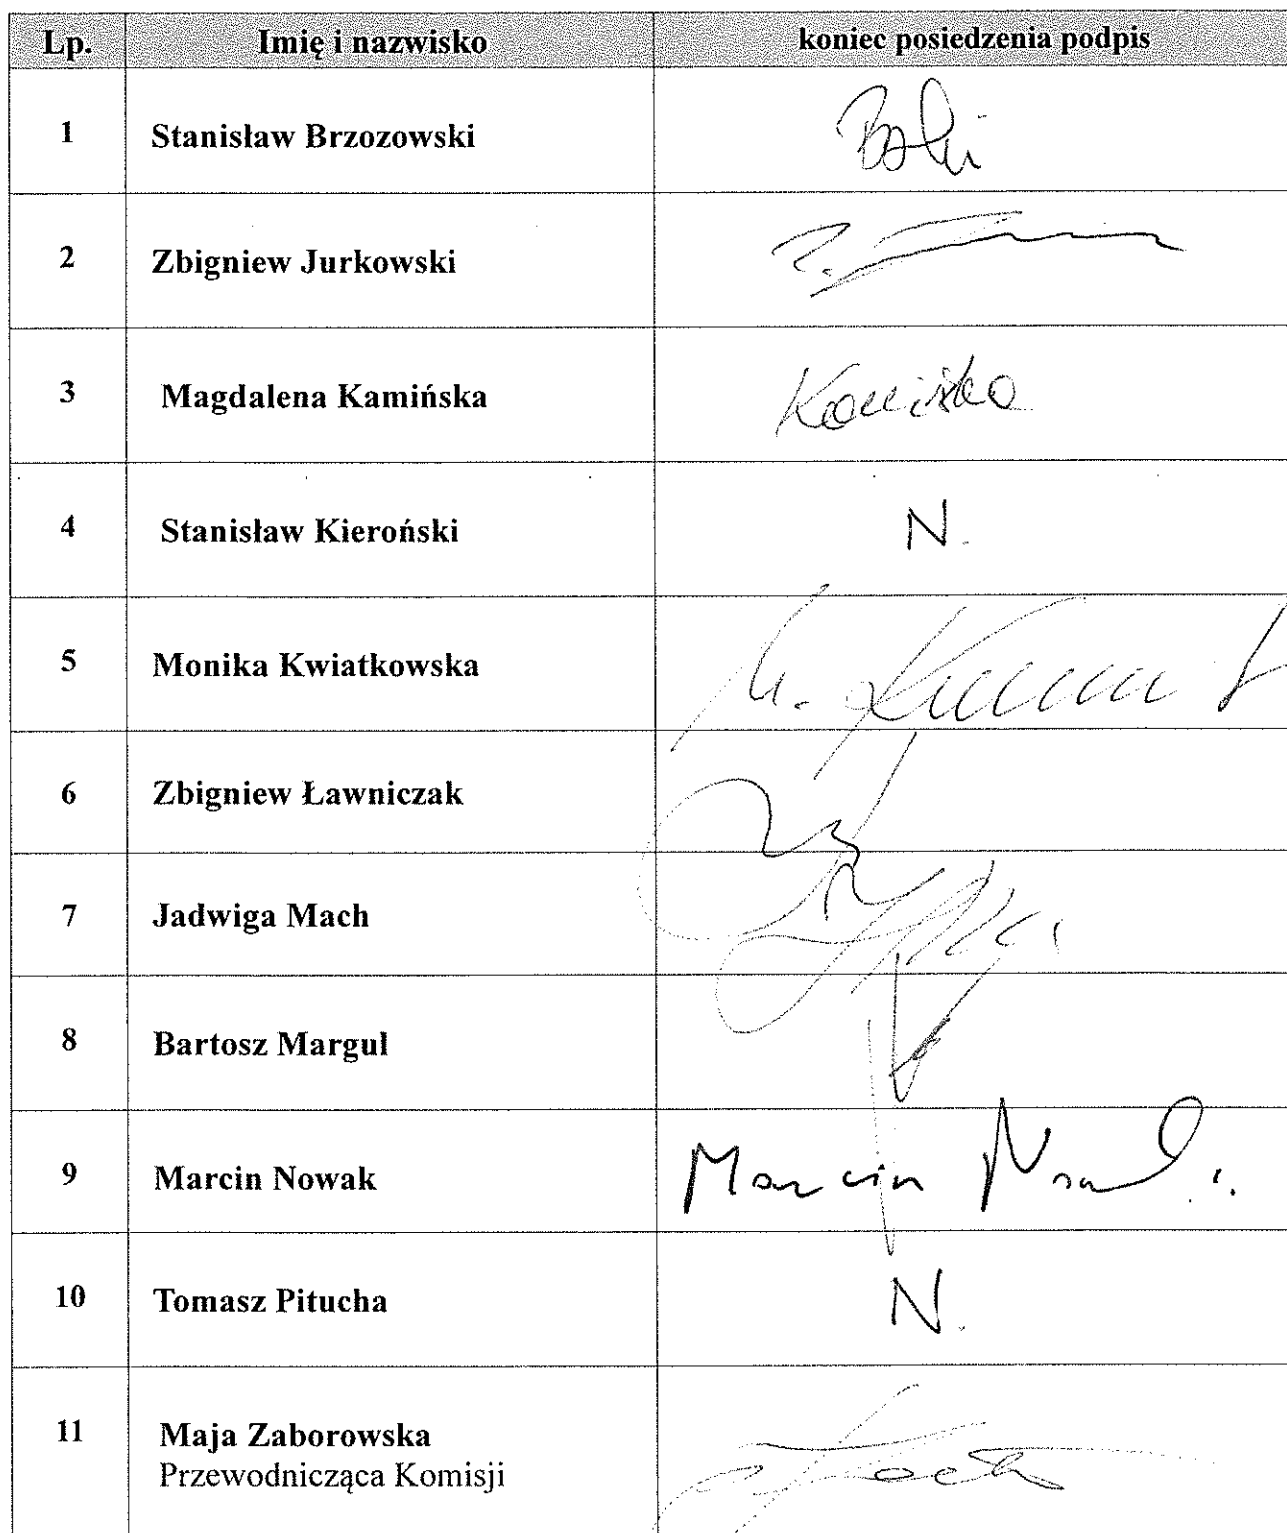 Lp. Imię i nazwisko koniec posiedzenia podpis
1 Stanisław Brzozowski
2 Zbigniew Jurkowski
3 Magdalena Kamińska Kamińska
4 Stanisław Kieroński N.
5 Monika Kwiatkowska
6 Zbigniew Ławniczak
7 Jadwiga Mach
8 Bartosz Margul
9 Marcin Nowak Marcin Nowak
10 Tomasz Pitucha N.
11 Maja Zaborowska
Przewodnicząca Komisji